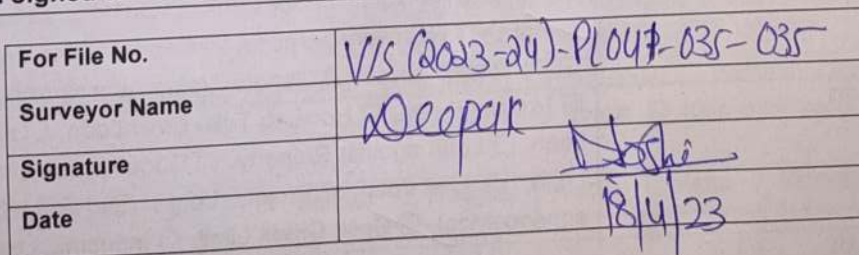 For File No. VIS (2023-24)-PL047-035-035
Surveyor Name Deepak
Signature Joshi
Date 18/4/23